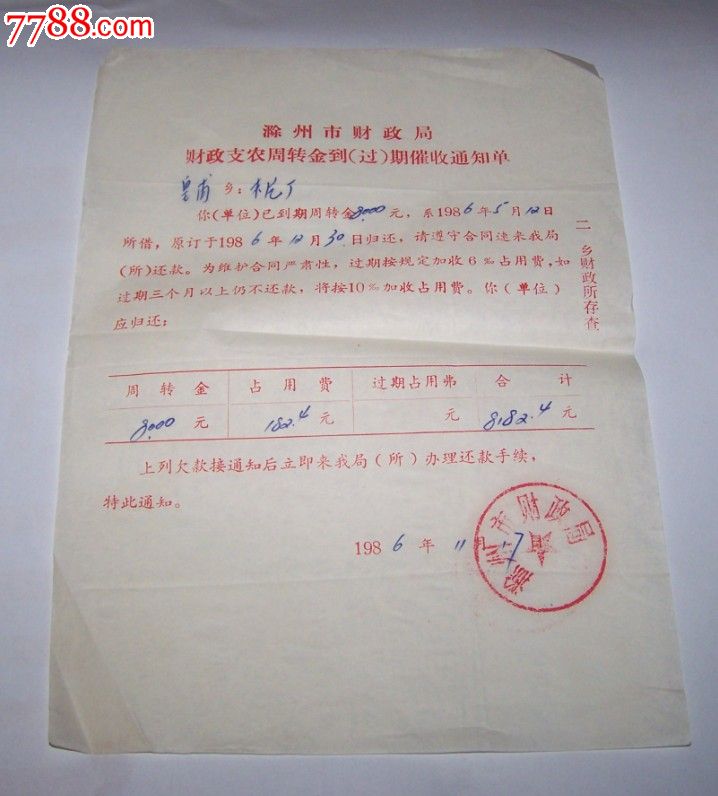 7788.com
滁州市财政局
财政支农周转金到(过)期催收通知单
皇甫乡:
你(单位)已到期周转金8000元,系1986年5月12日
所借,原订于1986年12月30日归还,请遵守合同速来我局
(所)还款。为维护合同严肃性,过期按规定加收6‰占用费,如
过期三个月以上仍不还款,将按10‰加收占用费。你(单位)
应归还:
周转金 占用费 过期占用费 合计
8000元 182.4元 元 8182.4元
上列欠款接通知后立即来我局(所)办理还款手续,
特此通知。
1986年11月17
滁州市财政局
二 乡财政所存查